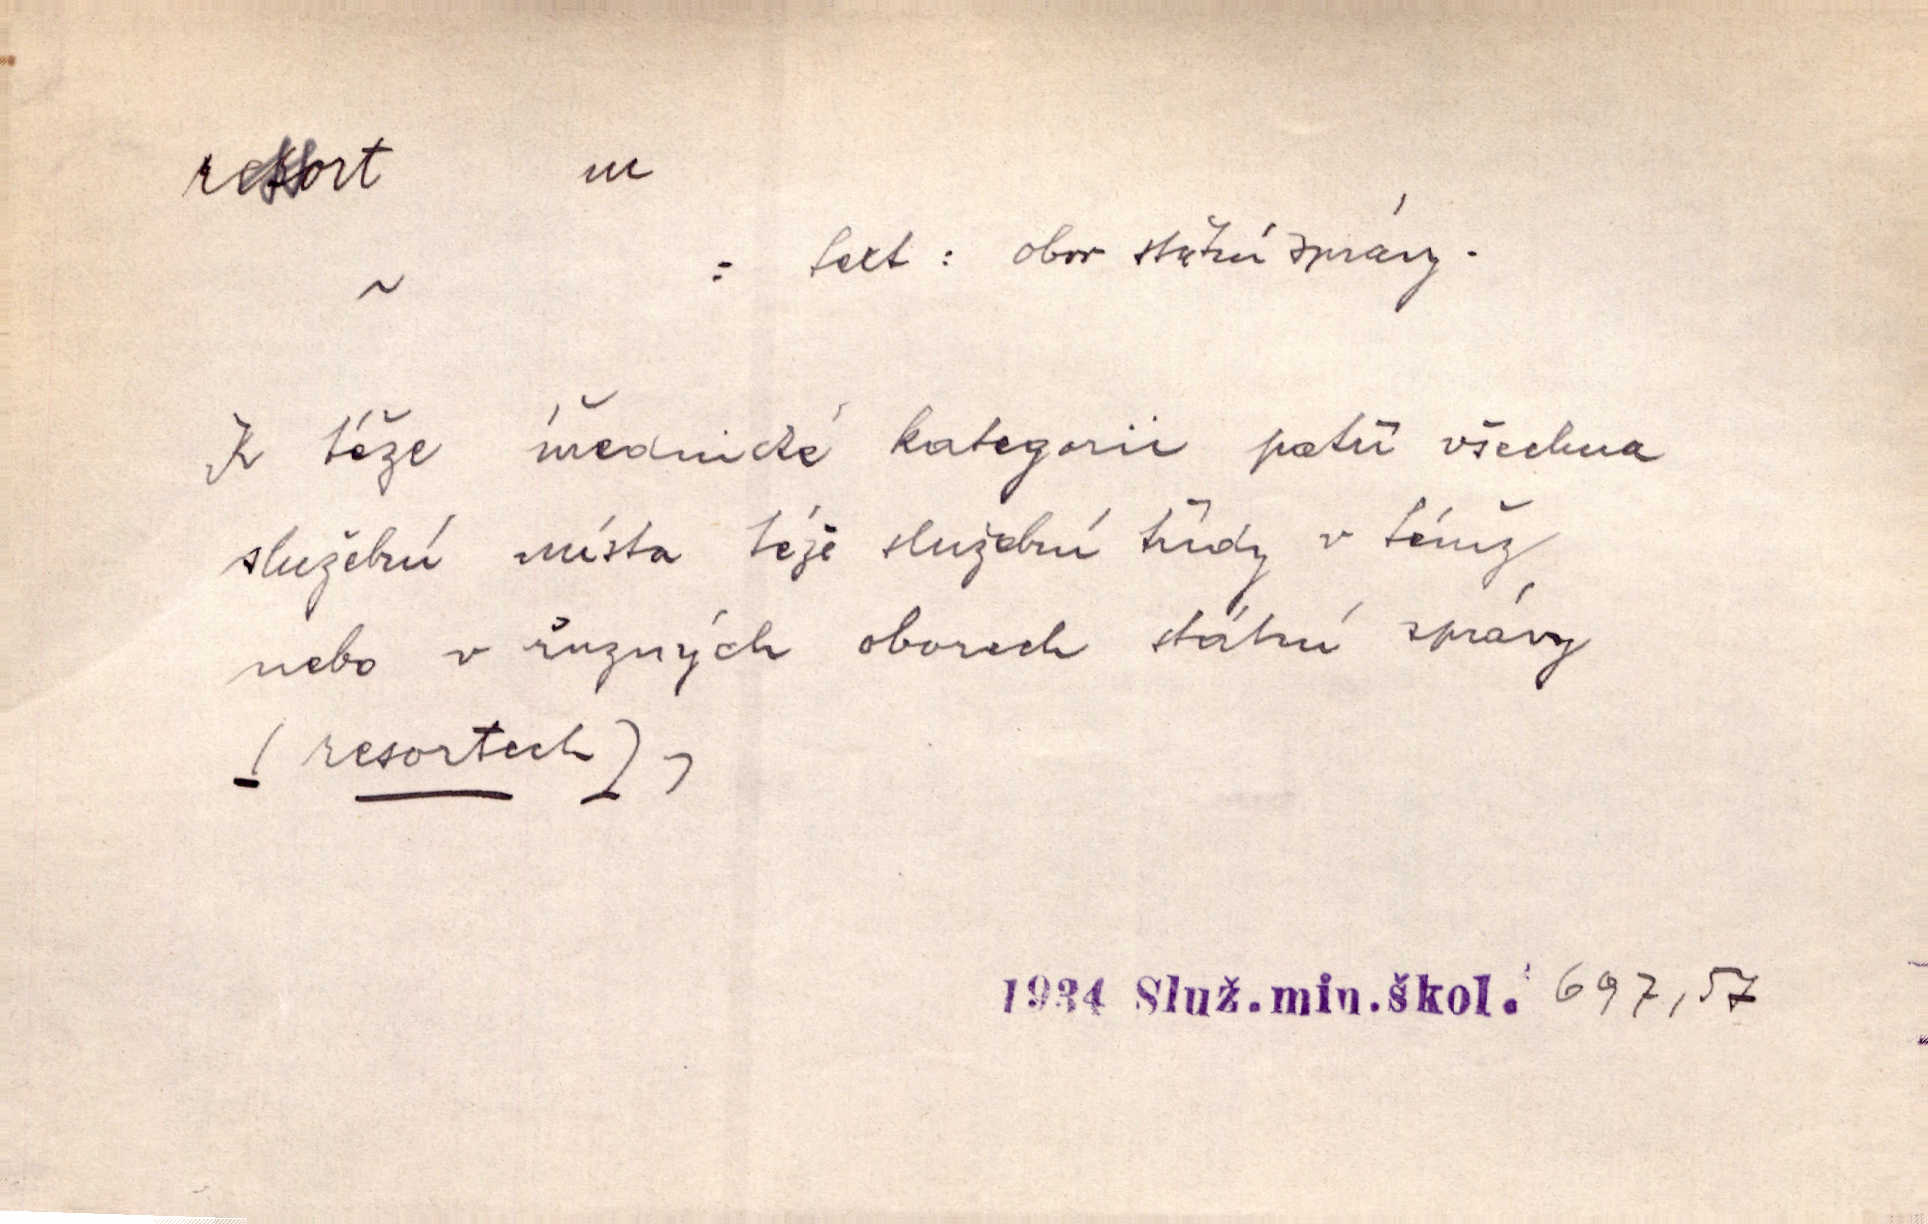 ressort m
~ = text : obor státní správy.
K téže úřednické kategorii patří všechna
služební místa téže služební třídy v témž
nebo v různých oborech státní správy
(resortech),
1934 Služ.min.škol. 697,57